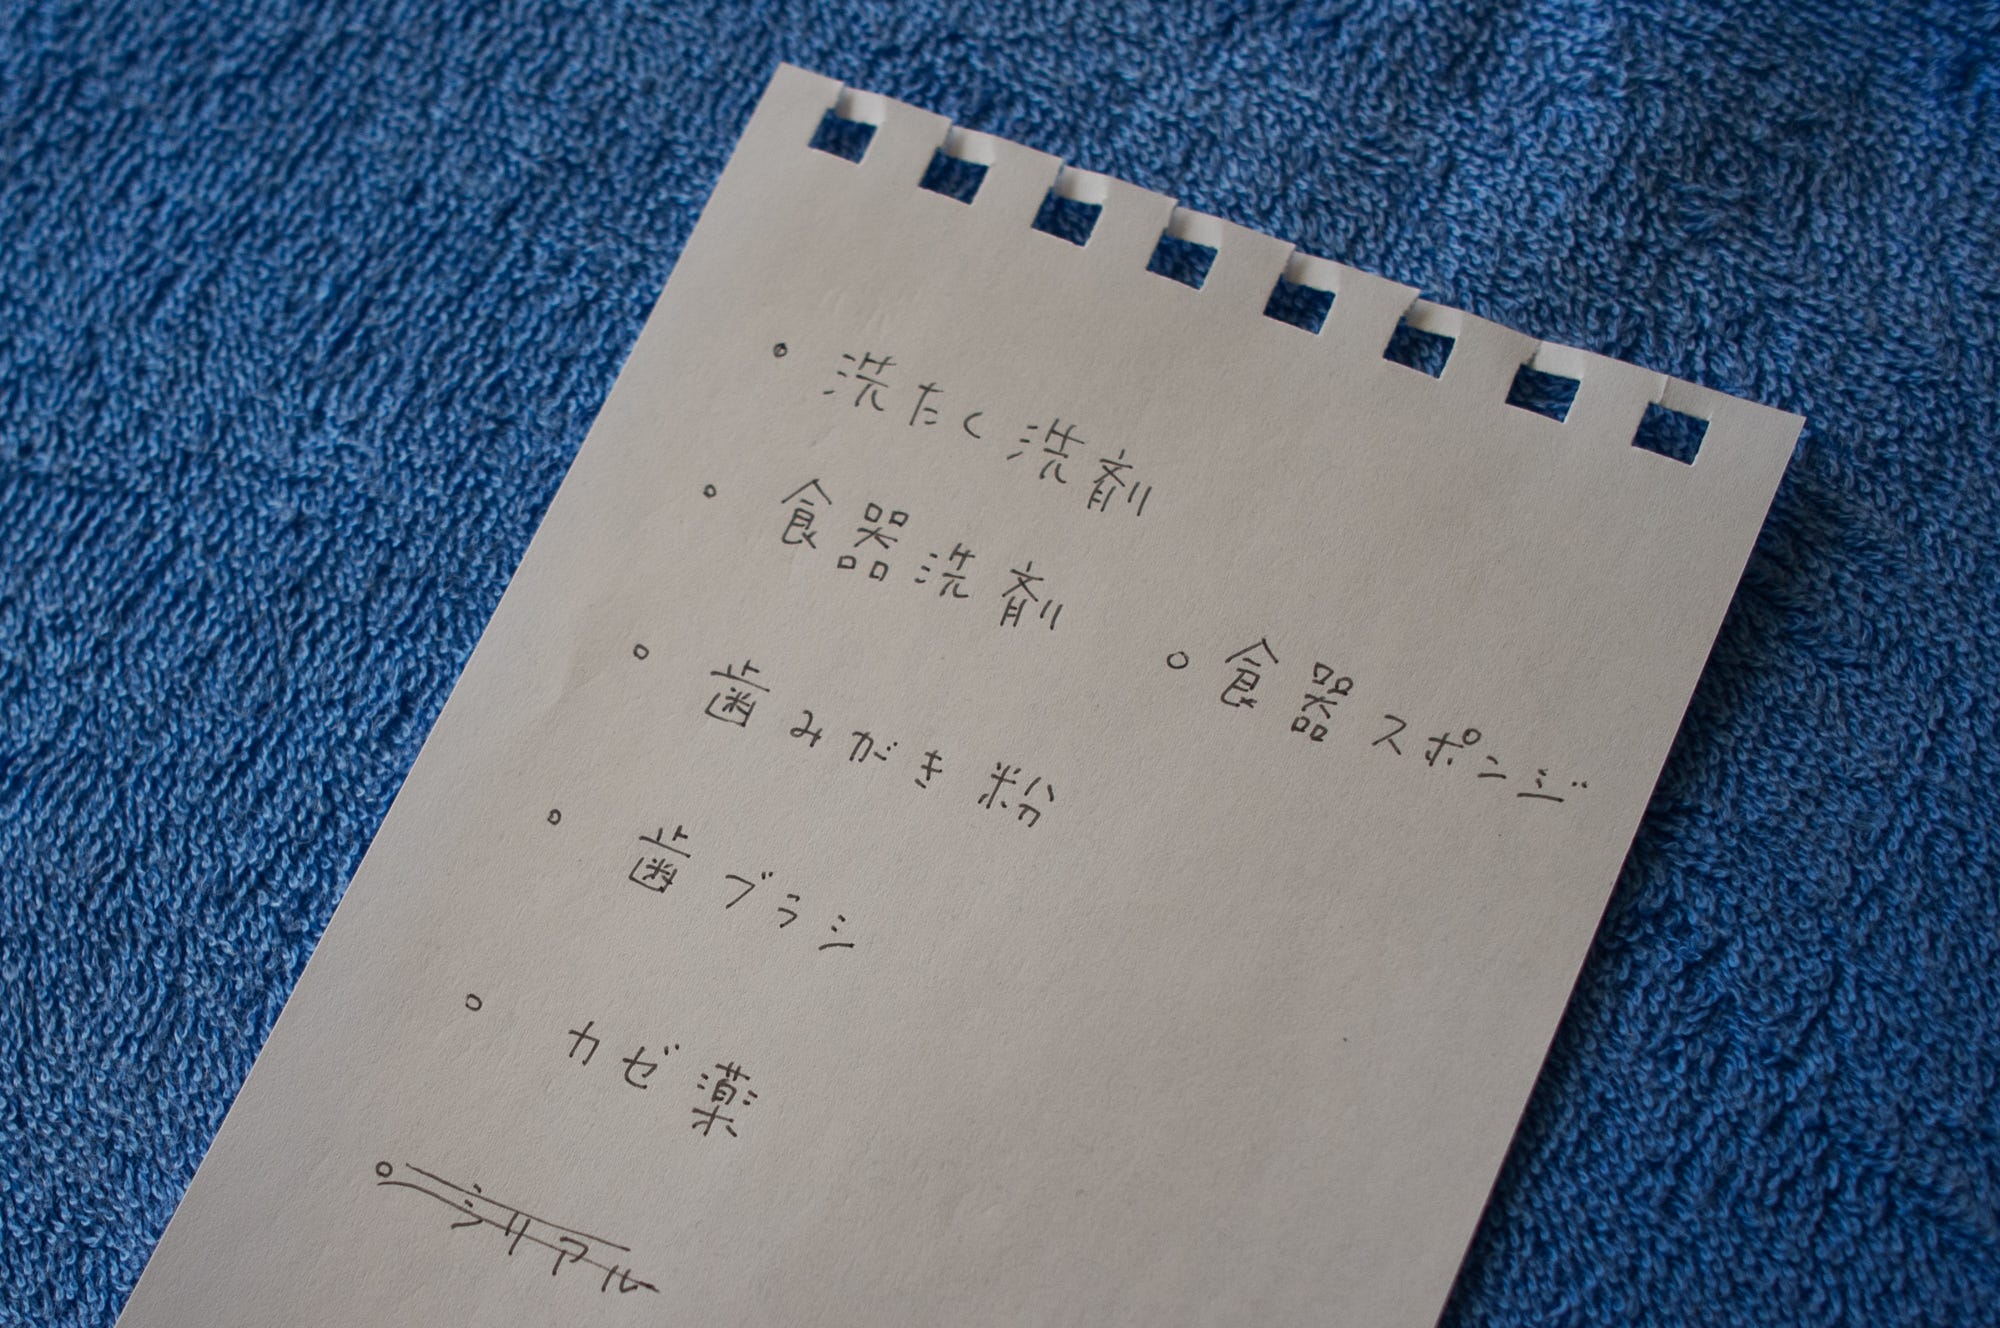 洗たく洗剤
食器洗剤
歯みがき粉
食器スポンジ
歯ブラシ
カゼ薬
シリアル